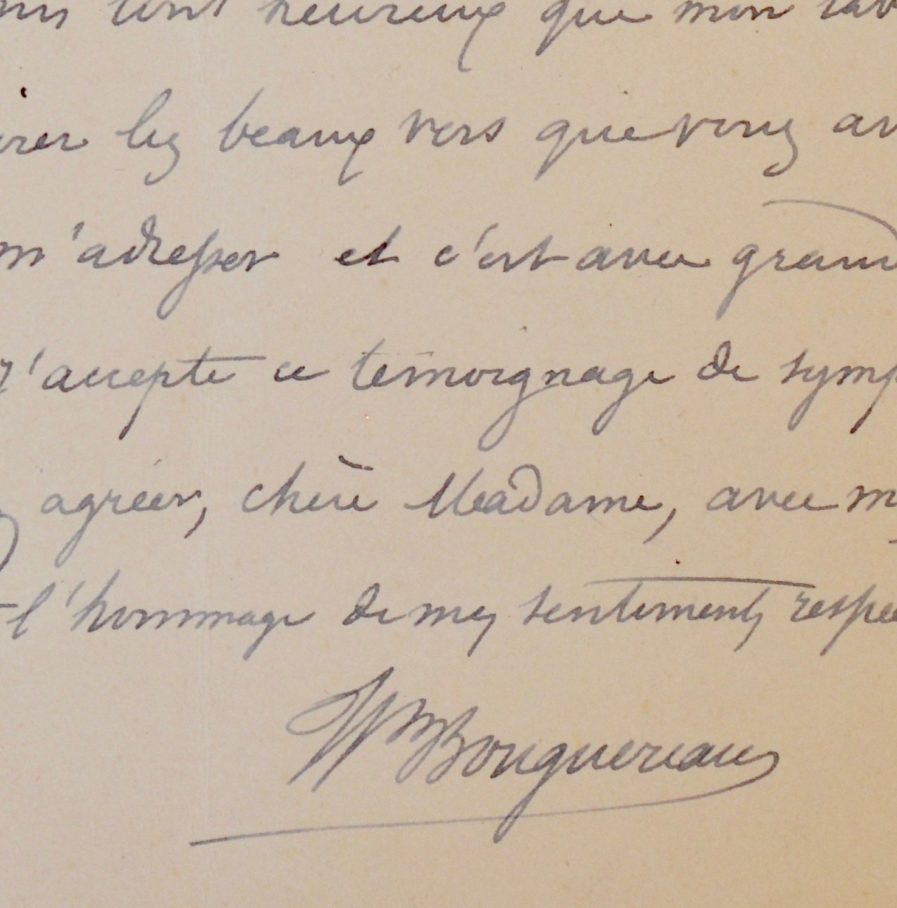 heureux que mon
les beaux vers que vous av
m'adresser et c'est avec grand
j'accepte ce témoignage de symp
agréer, chère Madame, avec m
l'hommage de mes sentiments respec
Wm Bouguereau